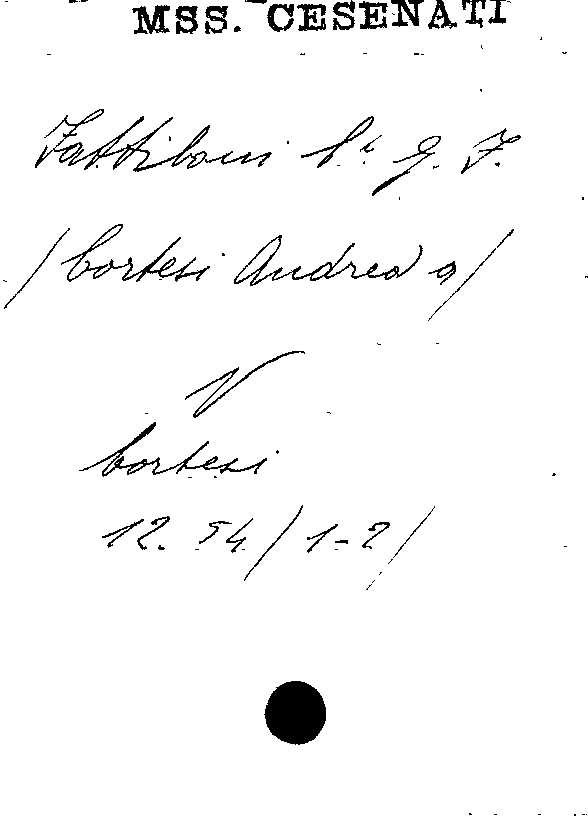 MSS. CESENATI
Fattiboni G. F.
/ Cortesi Andrea a /
V
Cortesi
12. 54 / 1-2 /